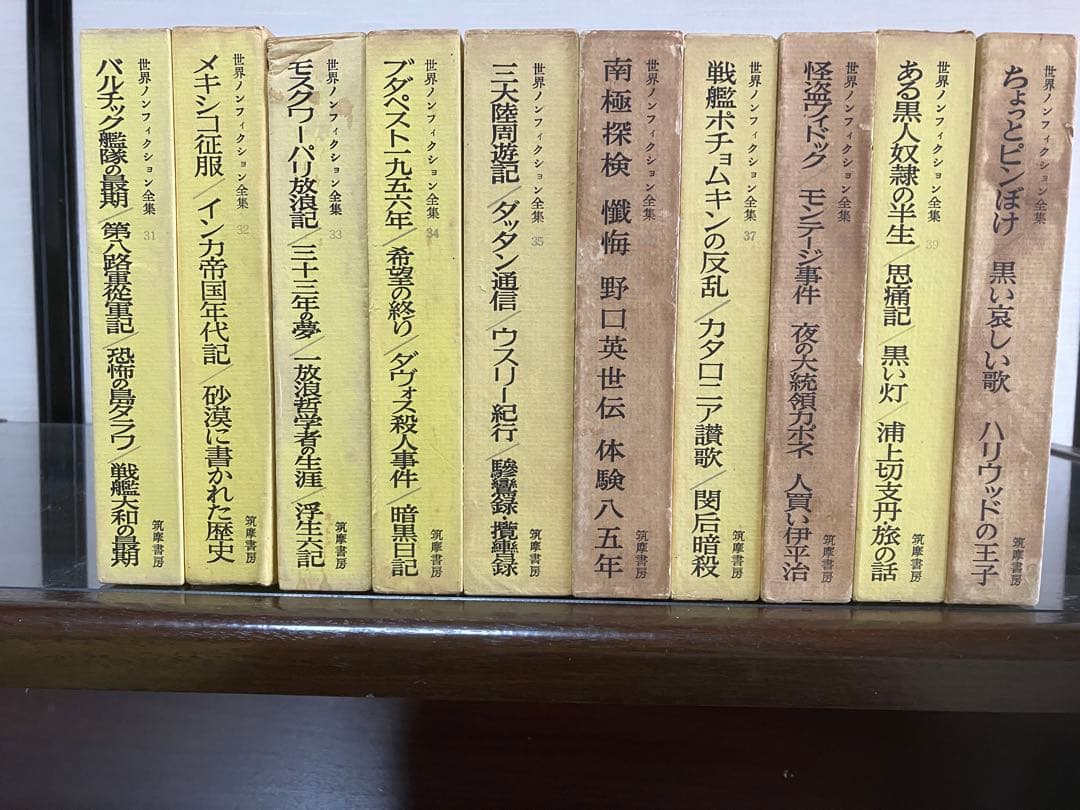 世界ノンフィクション全集 31
バルチック艦隊の最期/第八路軍従軍記/恐怖の島タラワ/戦艦大和の最期
筑摩書房
世界ノンフィクション全集 32
メキシコ征服/インカ帝国年代記/砂漠に書かれた歴史
筑摩書房
世界ノンフィクション全集 33
モスクワーパリ放浪記/三十三年の夢/一放浪哲学者の生涯/浮生六記
筑摩書房
世界ノンフィクション全集 34
ブダペスト一九五六年/希望の終り/ダヴォス殺人事件/暗黒日記
筑摩書房
世界ノンフィクション全集 35
三大陸周遊記/ダッタン通信/ウスリー紀行/驂鸞録・攬轡録
筑摩書房
世界ノンフィクション全集
南極探検 懺悔 野口英世伝 体験八五年
筑摩書房
世界ノンフィクション全集 37
戦艦ポチョムキンの反乱/カタロニア讃歌/閔后暗殺
筑摩書房
世界ノンフィクション全集
怪盗ヴィドック/モンテージ事件 夜の大統領カポネ 人買い伊平治
筑摩書房
世界ノンフィクション全集 39
ある黒人奴隷の半生/思痛記/黒い灯/浦上切支丹・旅の話
筑摩書房
世界ノンフィクション全集
ちょっとピンぼけ/黒い哀しい歌 ハリウッドの王子
筑摩書房